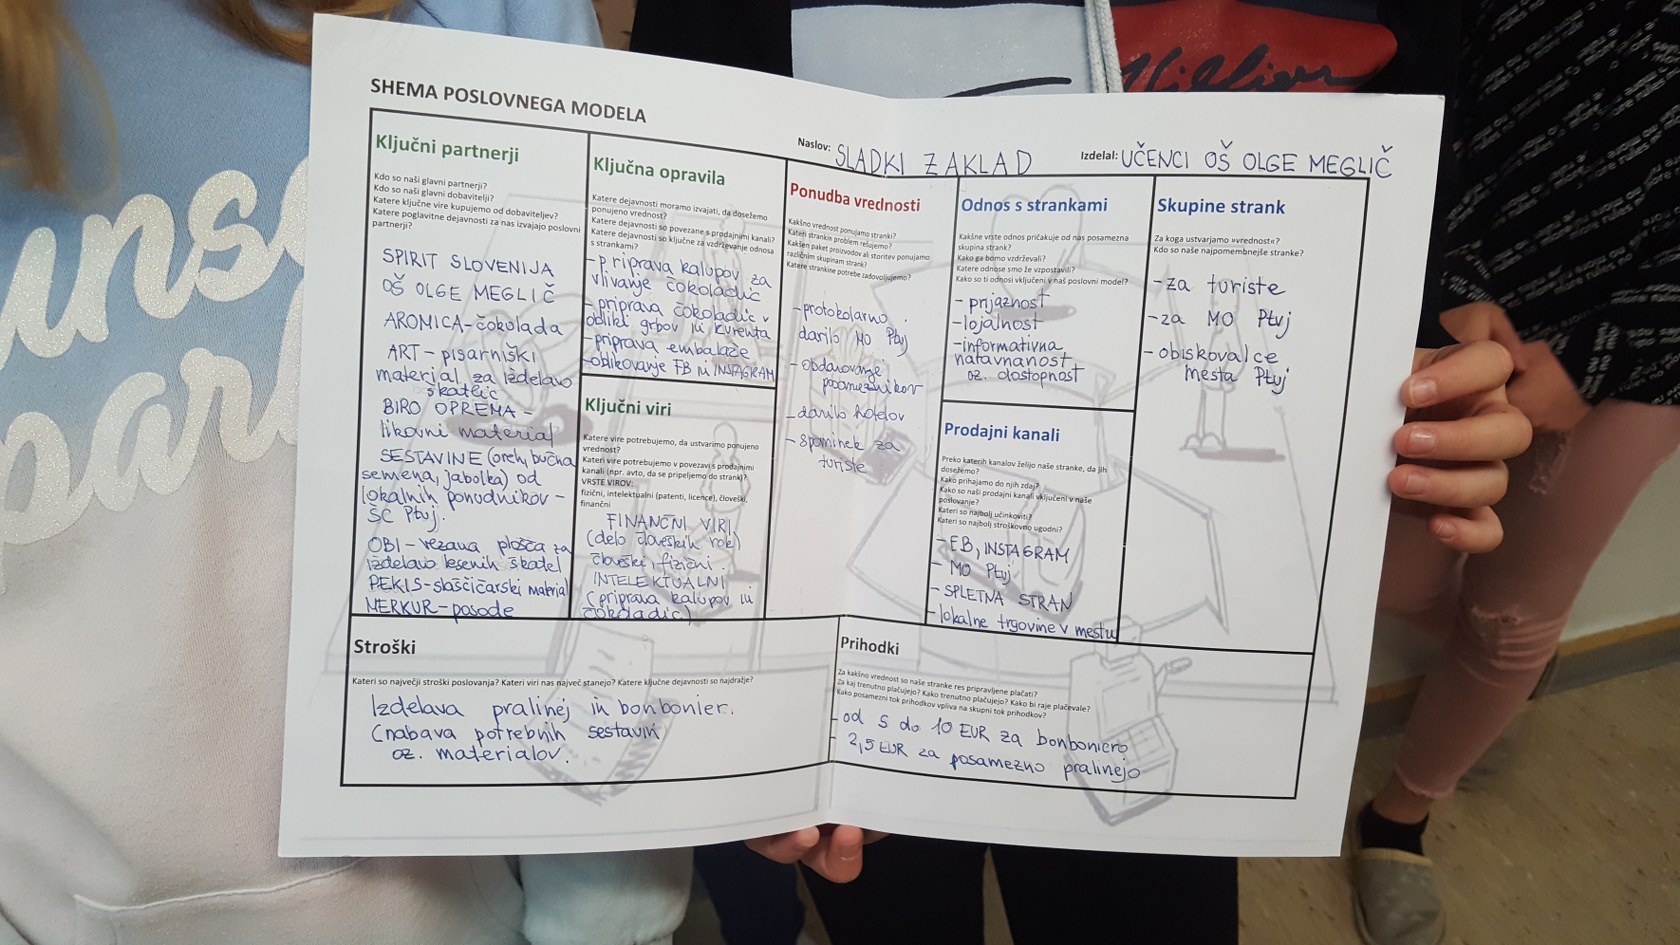 SHEMA POSLOVNEGA MODELA
Naslov: SLADKI ZAKLAD
Izdelal: UČENCI OŠ OLGE MEGLIČ
Ključni partnerji
Kdo so naši glavni partnerji?
Kdo so naši glavni dobavitelji?
Katere ključne vire kupujemo od dobaviteljev?
Katere poglavitne dejavnosti za nas izvajajo poslovni
partnerji?
SPIRIT SLOVENIJA
OŠ OLGE MEGLIČ
AROMICA-čokolada
ART - pisarniški
material za izdelavo
škatlic
BIRO OPREMA -
likovni material
SESTAVINE (oreh, bučna
semena, jabolka) od
lokalnih ponudnikov -
ŠC Ptuj.
OBI - vezana plošča za
izdelavo lesenih škatel
PEKIS-slaščičarski material
MERKUR-posode
Ključna opravila
Katere dejavnosti moramo izvajati, da dosežemo
ponujeno vrednost?
Katere dejavnosti so povezane s prodajnimi kanali?
Katere dejavnosti so ključne za vzdrževanje odnosa
s strankami?
-priprava kalupov za
vlivanje čokoladic
-priprava čokoladic v
obliki grbov in kurenta
-priprava embalaže
-oblikovanje FB in INSTAGRAM
Ključni viri
Katere vire potrebujemo, da ustvarimo ponujeno
vrednost?
Kateri vire potrebujemo v povezavi s prodajnimi
kanali (npr. avto, da se pripeljemo do strank)?
VRSTE VIROV:
fizični, intelektualni (patenti, licence), človeški,
finančni
FINANČNI VIRI
(delo človeških rok)
človeški, fizični.
INTELEKTUALNI
(priprava kalupov in
čokoladic)
Ponudba vrednosti
Kakšno vrednost ponujamo stranki?
Kateri strankin problem rešujemo?
Kakšen paket proizvodov ali storitev ponujamo
različnim skupinam strank?
Katere strankine potrebe zadovoljujemo?
-protokolarno
darilo MO Ptuj
- obdarovanje
posameznikov
- darilo hotelov
- spominek za
turiste
Odnos s strankami
Kakšne vrste odnos pričakuje od nas posamezna
skupina strank?
Kako ga bomo vzdrževali?
Katere odnose smo že vzpostavili?
Kako so ti odnosi vključeni v naš poslovni model?
- prijaznost
-lojalnost
-informativna
natavnanost
oz. dostopnost
Prodajni kanali
Preko katerih kanalov želijo naše stranke, da jih
dosežemo?
Kako prihajamo do njih zdaj?
Kako so naši prodajni kanali vključeni v naše
poslovanje?
Kateri so najbolj učinkoviti?
Kateri so najbolj stroškovno ugodni?
- FB, INSTAGRAM
- MO Ptuj
- SPLETNA STRAN
- lokalne trgovine v mestu
Skupine strank
Za koga ustvarjamo »vrednost«?
Kdo so naše najpomembnejše stranke?
-za turiste
-za MO Ptuj
- obiskovalce
mesta Ptuj
Stroški
Kateri so največji stroški poslovanja? Kateri viri nas največ stanejo? Katere ključne dejavnosti so najdražje?
Izdelava pralinej in bonbonier.
(nabava potrebnih sestavin
oz. materialov.
Prihodki
Za kakšno vrednost so naše stranke res pripravljene plačati?
Za kaj trenutno plačujejo? Kako trenutno plačujejo? Kako bi raje plačevale?
Kako posamezni tok prihodkov vpliva na skupni tok prihodkov?
- od 5 do 10 EUR za bonboniero
- 2,5 EUR za posamezno pralinejo